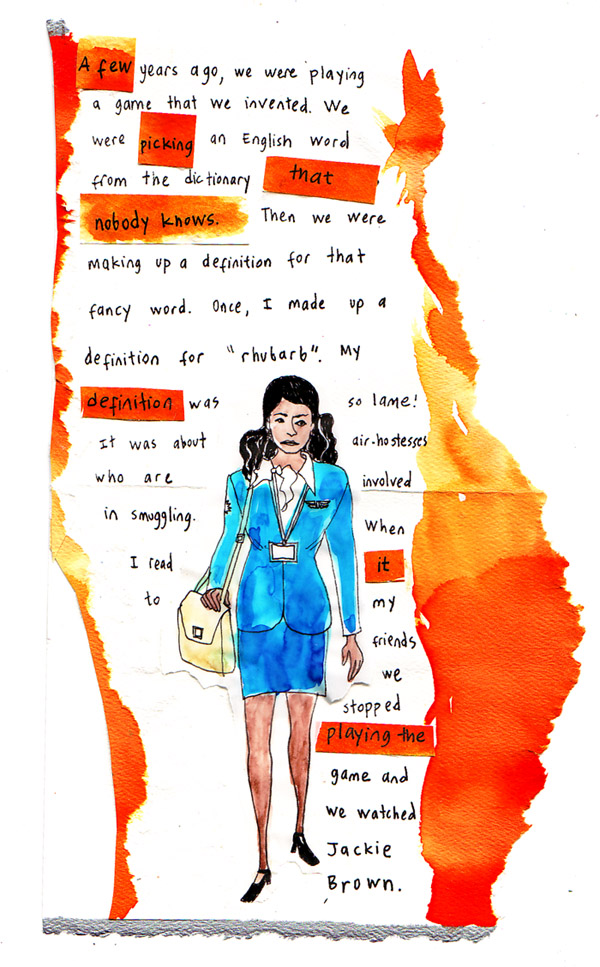 A few years ago, we were playing
a game that we invented. We
were picking an English word
from the dictionary that
nobody knows. Then we were
making up a definition for that
fancy word. Once, I made up a
definition for "rhubarb". My
definition was so lame!
It was about air-hostesses
who are involved
in smuggling. When
I read it
to my
friends
we
stopped
playing the
game and
we watched
Jackie
Brown.